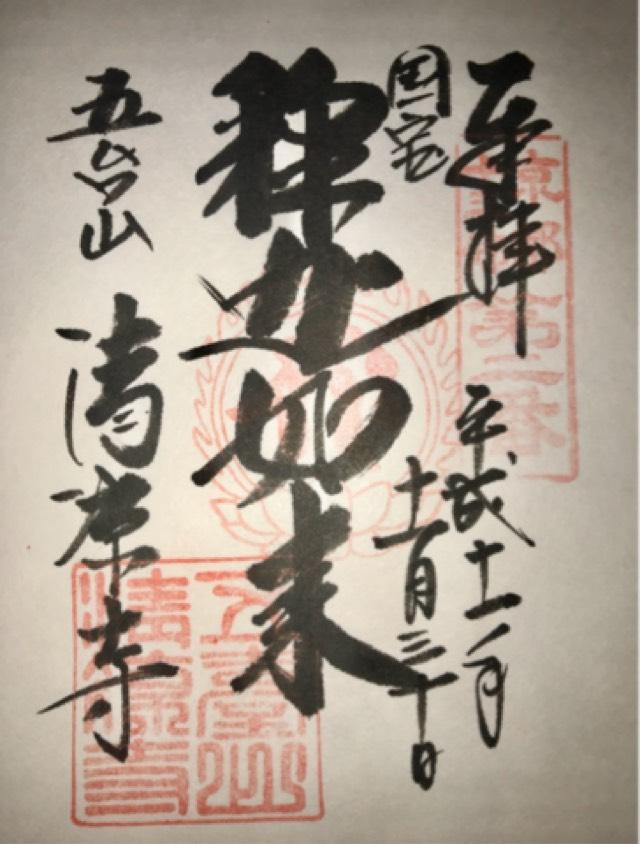 奉拝
京都第二番
平成十一年
十一月三十日
国宝
釋迦如来
五台山
清凉寺
五臺山
清凉寺